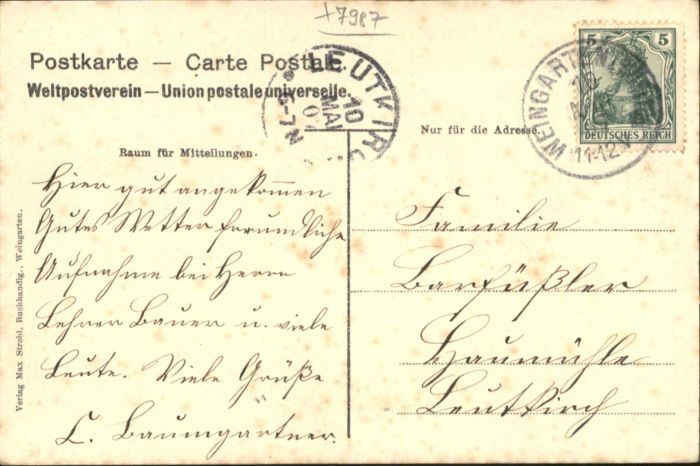 +7987
Postkarte — Carte Postale.
Weltpostverein — Union postale universelle.
LEUTKIRCH
10
MAI
6-7 N
WEINGARTEN
11-12
5 5
DEUTSCHES REICH
Nur für die Adresse.
Raum für Mitteilungen.
Hier gut angekommen
Gutes Wetter freundliche
Aufnahme bei Herrn
Lehrer Bauer u. viele
Leute. Viele Grüße
C. Baumgartner.
Familie
Barfüßler
Haumühle
Leutkirch
Verlag Max Strobl, Buchhandlg., Weingarten.